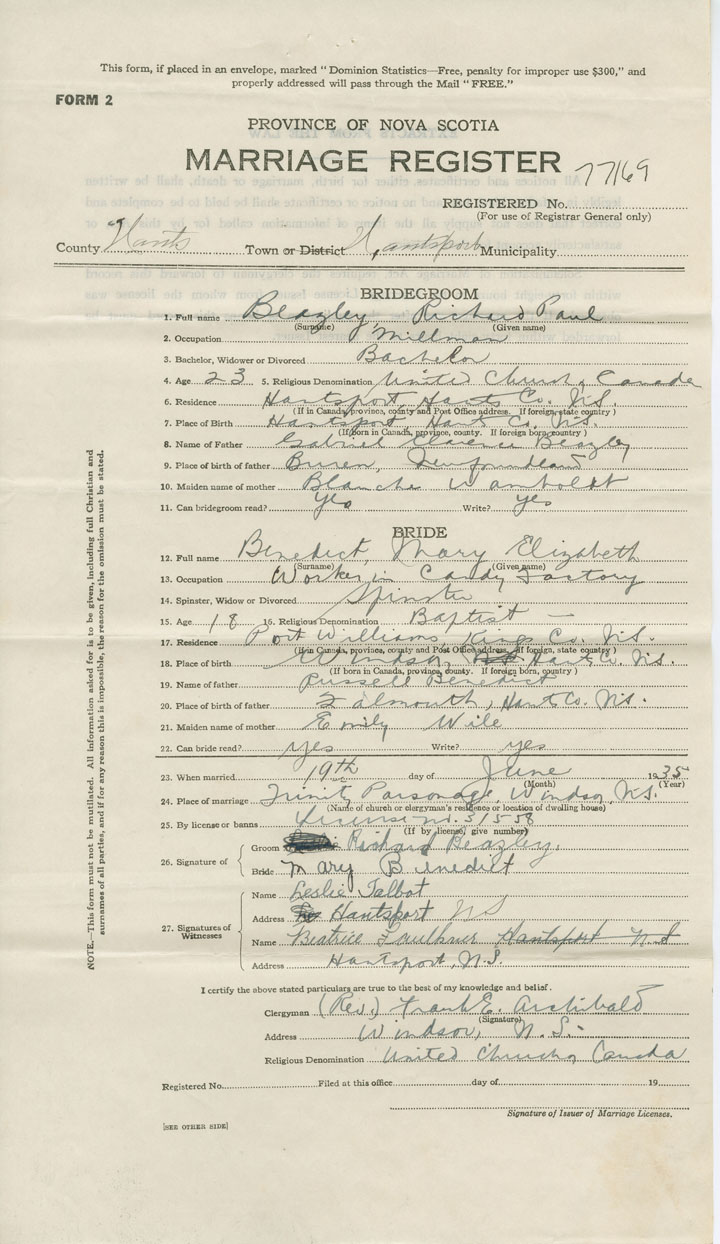 This form, if placed in an envelope, marked "Dominion Statistics—Free, penalty for improper use $300," and
properly addressed will pass through the Mail "FREE."
FORM 2
PROVINCE OF NOVA SCOTIA
MARRIAGE REGISTER
77169
REGISTERED No.
(For use of Registrar General only)
County Hants Town or District Hantsport Municipality
BRIDEGROOM
1. Full name Beazley, Richard Paul
(Surname) (Given name)
2. Occupation Millman
3. Bachelor, Widower or Divorced Bachelor
4. Age 23 5. Religious Denomination United Church, Canada
6. Residence Hantsport, Hants Co. N.S.
(If in Canada, province, county and Post Office address. If foreign, state country)
7. Place of Birth Hantsport, Hants Co. N.S.
(If born in Canada, province, county. If foreign born, country)
8. Name of Father Gabriel Clarence Beazley
9. Place of birth of father Buren, Newfoundland
10. Maiden name of mother Blanche Wamboldt
11. Can bridegroom read? Yes Write? yes
BRIDE
12. Full name Benedict, Mary Elizabeth
(Surname) (Given name)
13. Occupation Worker in Candy Factory
14. Spinster, Widow or Divorced Spinster
15. Age 18 16. Religious Denomination Baptist —
17. Residence Port Williams, Kings Co. N.S.
(If in Canada, province, county and Post Office address. If foreign, state country)
18. Place of birth Windsor, Hants Co. N.S.
(If born in Canada, province, county. If foreign born, country)
19. Name of father Russell Benedict
20. Place of birth of father Falmouth, Hants Co. N.S.
21. Maiden name of mother Emily Wile
22. Can bride read? yes Write? yes
23. When married 19th day of June 1935
(Month) (Year)
24. Place of marriage Trinity Parsonage, Windsor, N.S.
(Name of church or clergyman's residence or location of dwelling house)
25. By license or banns License no. 31558
(If by license, give number)
26. Signature of
Groom Richard Beazley.
Bride Mary Benedict
27. Signatures of Witnesses
Name Leslie Talbot
Address Hantsport NS
Name Beatrice Faulkner Hantsport N.S
Address Hantsport, N.S.
I certify the above stated particulars are true to the best of my knowledge and belief.
Clergyman (Rev.) Frank E. Archibald
(Signature)
Address Windsor, N.S.-
Religious Denomination United Church, Canada
Registered No. Filed at this office day of 19
Signature of Issuer of Marriage Licenses.
[SEE OTHER SIDE]
NOTE.—This form must not be mutilated. All information asked for is to be given, including full Christian and
surnames of all parties, and if for any reason this is impossible, the reason for the omission must be stated.